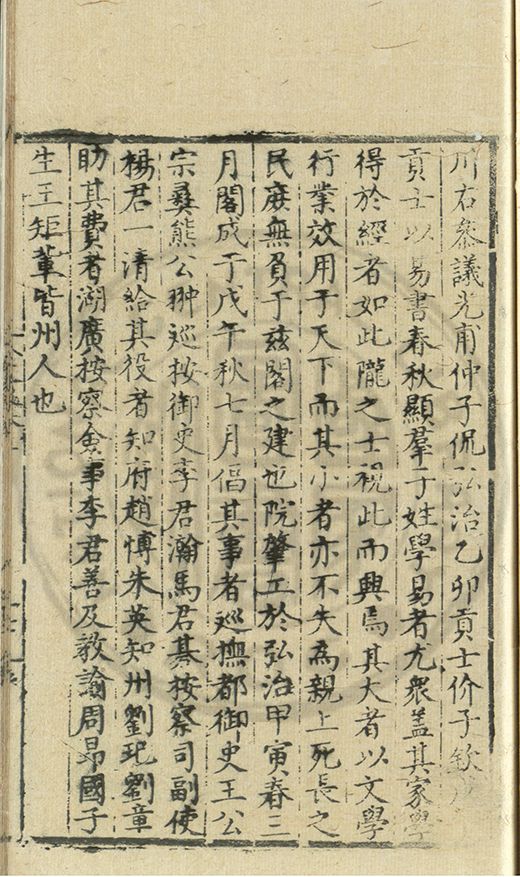 川右參議光甫仲子侃弘治乙卯貢士价子欽
貢士以易書春秋顯羣于姓學易者尤衆盖其家學
得於經者如此隴之士視此而興焉其大者以文學
行業效用于天下而其小者亦不失為親上死長之
民庻無負于兹閣之建也院肇工於弘治甲寅春三
月閣成于戊午秋七月倡其事者巡撫都御史王公
宗彞熊公翀巡按御史李君瀚馬君綦按察司副使
楊君一清給其役者知府趙愽朱英知州劉玘劉章
助其費者湖廣按察僉事李君善及教諭周昂國子
生王矩軰皆州人也